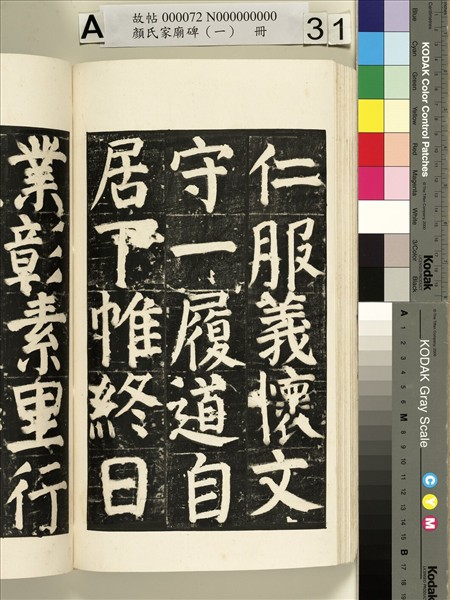 A
故帖 000072 N000000000
顏氏家廟碑（一） 冊
31
仁服義懷文
守一履道自
居下帷終日
業彰素里行
KODAK Color Control Patches
Blue
Cyan
Green
Yellow
Red
Magenta
White
3/Color
Black
Kodak
KODAK Gray Scale
A 1 2 3 4 5 6 M 8 9 10 11 12 13 14 15 B 17 18 19
C Y M
Kodak